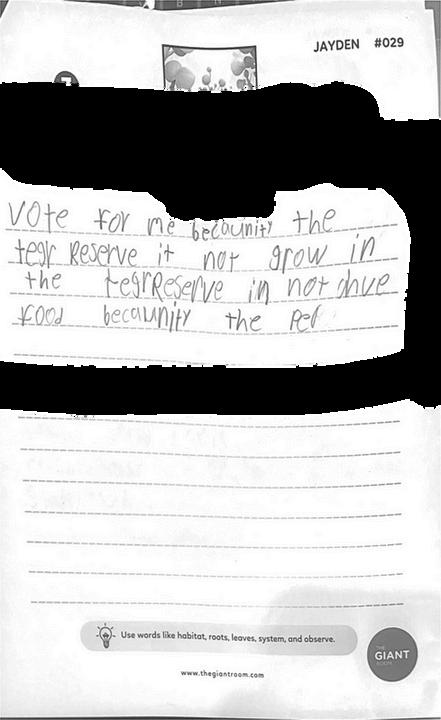 JAYDEN #029
7
Vote for me becaunity the
tegr Reserve it not grow in
the tegrReserve in not ohve
food becaunity the Pef
Use words like habitat, roots, leaves, system, and observe.
THE
GIANT
ROOM
www.thegiantroom.com